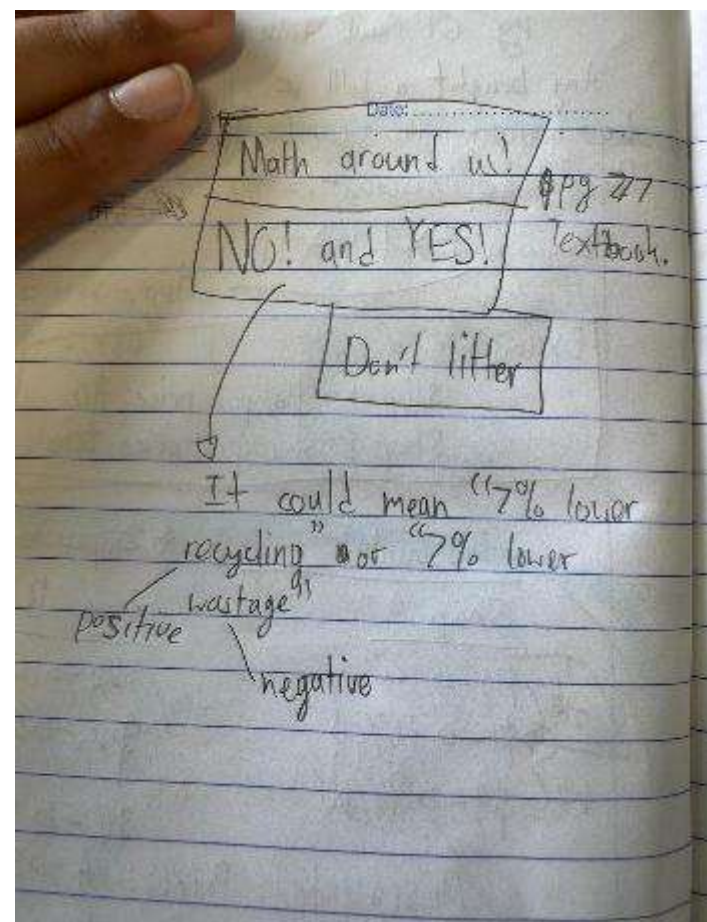 Date:
Math around us!
pg 227
NO! and YES!
Textbook.
Don't litter
It could mean "7% lower
recycling" or "7% lower
wastage"
positive
negative